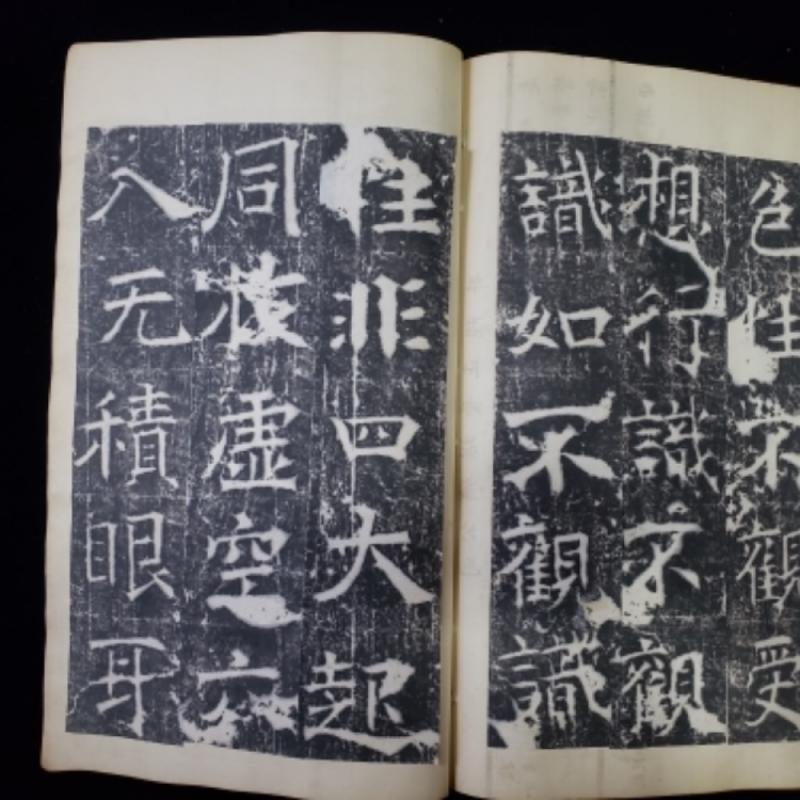 色性不觀受
想行識不觀
識如不觀識
性非四大起
同於虛空六
入无積眼耳